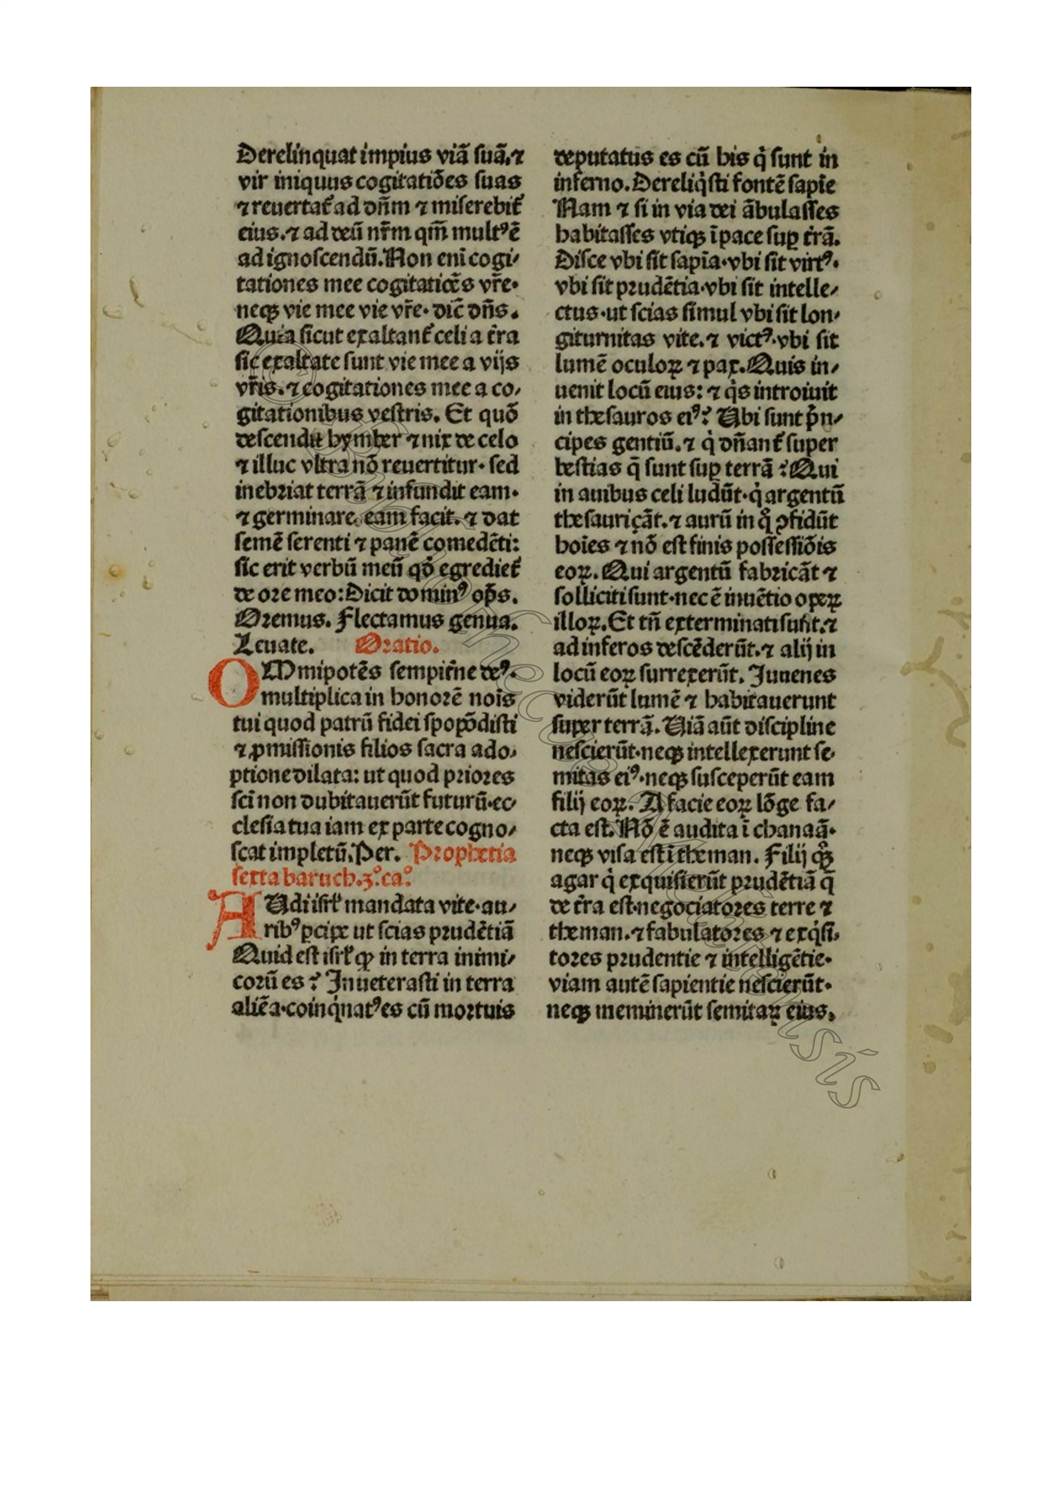 Derelinquat impius viã suã.⁊
vir iniquus cogitatiões suas
⁊ reuertat᷑ ad dñm ⁊ miserebit᷑
eius.⁊ ad deũ nr̃m qm̃ multꝰ ẽ
ad ignoscendũ. Non eni cogi/
tationes mee cogitatiões vr̃e.
neqꝫ vie mee vie vr̃e. dic̃ dñs.
Quia sicut exaltant᷑ celi a tr̃a
sic exaltate sunt vie mee a vijs
vr̃is.⁊ cogitationes mee a co/
gitationibus vestris. Et quõ
descendit hymber ⁊ nix de celo
⁊ illuc vltra nõ reuertitur. sed
inebriat terrã ⁊ infundit eam.
⁊ germinare eam facit.⁊ dat
semẽ serenti ⁊ panẽ comedẽti:
sic erit verbũ meũ qõ egrediet᷑
de ore meo: Dicit dominꝰ op̃s.
Oremus. Flectamus genua.
Leuate. Oratio.
OMnipotẽs sempit̃ne deꝰ.
multiplica in honorẽ nois̃
tui quod patrũ fidei spopõdisti
⁊ ꝓmissionis filios sacra ado/
ptione dilata: ut quod priores
sc̃i non dubitauerũt futurũ. ec/
clesia tua iam ex parte cogno/
scat impletũ. Per. Prophetia
sexta baruch.3.° ca.°
AUdi isrl̃ mandata vite. au/
ribꝰ ꝑcipe ut scias prudẽtiã
Quid est isrl̃ ꝙ in terra inimi/
corũ es ? Inueterasti in terra
aliẽa. coinq̇natꝰ es cũ mortuis
deputatus es cũ his q̇ sunt in
inferno. Dereliq̇sti fontẽ sapĩe
Nam ⁊ si in via dei ãbulasses
habitasses vtiqꝫ ĩ pace suꝑ tr̃ã.
Disce vbi sit sapĩa. vbi sit virtꝰ.
vbi sit prudẽtia. vbi sit intelle/
ctus. ut scias simul vbi sit lon/
giturnitas vite.⁊ victꝰ. vbi sit
lumẽ oculoꝝ ⁊ pax. Quis in/
uenit locũ eius: ⁊ q̇s introiuit
in thesauros eiꝰ? Ubi sunt pñ/
cipes gentiũ.⁊ q̇ dñant᷑ super
bestias q̃ sunt suꝑ terrã ? Qui
in auibus celi ludũt. q̇ argentũ
thesauriçãt.⁊ aurũ in q̊ ↄfidũt
hoĩes ⁊ nõ est finis possessiõis
eoꝝ. Qui argentũ fabricãt ⁊
solliciti sunt. nec ẽ inuẽtio opeꝝ
illoꝝ. Et tñ exterminati sunt.⁊
ad inferos descẽderũt.⁊ alij in
locũ eoꝝ surrexerũt. Iuuenes
viderũt lumẽ ⁊ habitauerunt
super terrã. Uiã aũt discipline
nescierũt. neqꝫ intellexerunt se/
mitas eiꝰ. neqꝫ susceperũt eam
filij eoꝝ. A facie eoꝝ lõge fa/
cta est. Nõ ẽ audita ĩ chanaã.
neqꝫ visa est ĩ theman. Filij qꝫ
agar q̇ exquisierũt prudẽtiã q̃
de tr̃a est. negociatores terre ⁊
theman.⁊ fabulatores ⁊ exq̇si/
tores prudentie ⁊ intelligẽtie.
viam autẽ sapientie nescierũt.
neqꝫ meminerũt semitaꝝ eius.